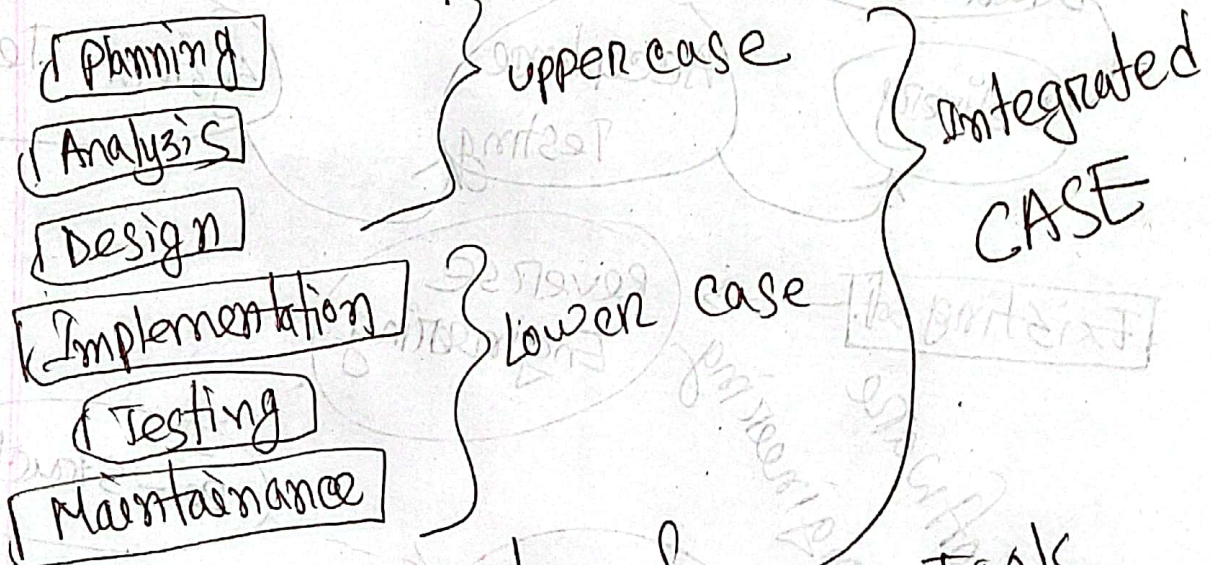 Planning
Analysis
Design
Implementation
Testing
Maintainance
uppercase
Lower case
Integrated
CASE